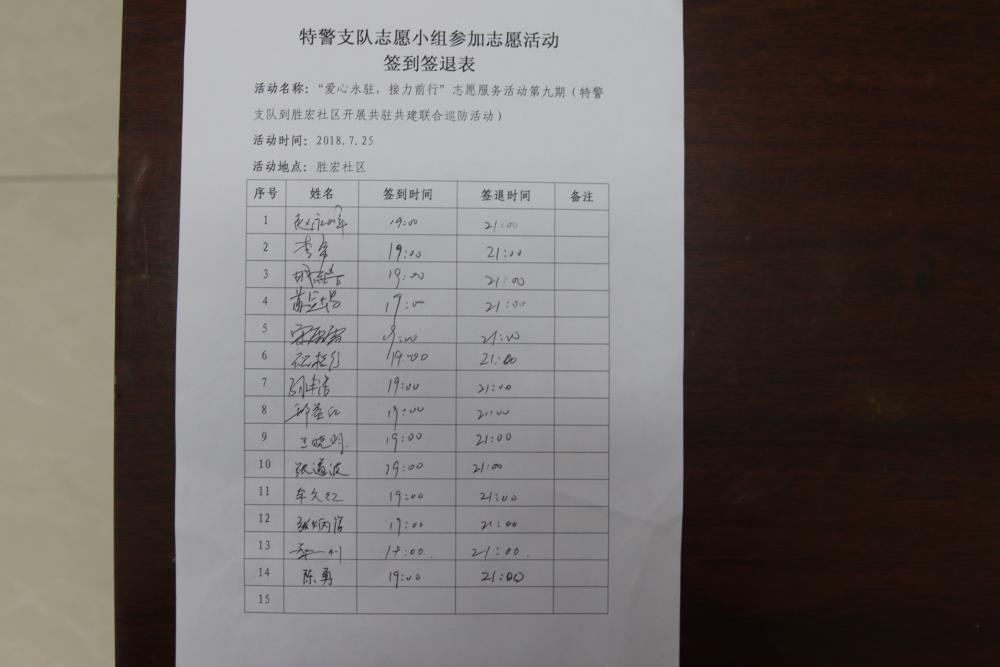 特警支队志愿小组参加志愿活动
签到签退表
活动名称：“爱心永驻，接力前行”志愿服务活动第九期（特警
支队到胜宏社区开展共驻共建联合巡防活动）
活动时间：2018.7.25
活动地点：胜宏社区
序号 姓名 签到时间 签退时间 备注
1 19:00 21:00
2 19:00 21:00
3 19:00 21:00
4 19:00 21:00
5 21:00
6 19:00 21:00
7 19:00 21:00
8 19:00 21:00
9 王晓明 19:00 21:00
10 张道波 19:00 21:00
11 牟久红 19:00 21:00
12 19:00 21:00
13 21:00
14 陈勇 19:00 21:00
15